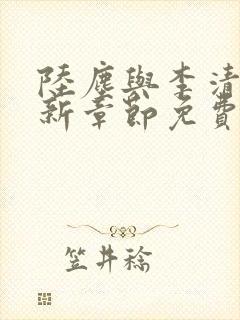 陸塵與李清
新章節免費
笠井稔